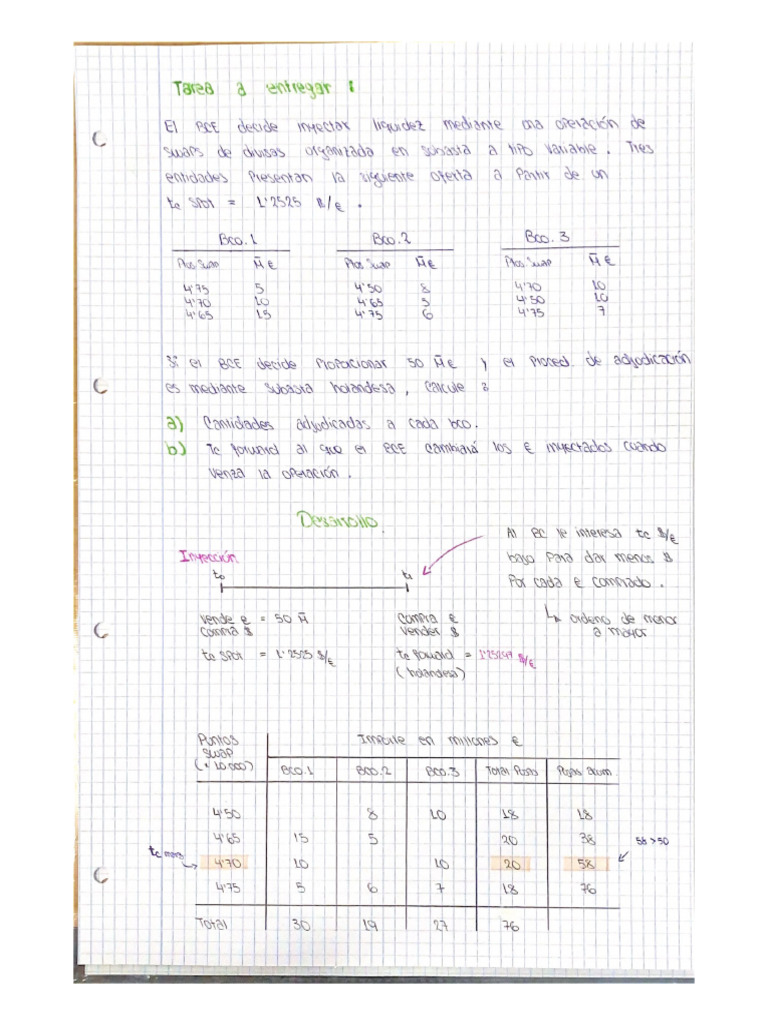 Tarea a entregar :
El BCE decide inyectar liquidez mediante una operación de
swaps de divisas organizada en subasta a tipo variable. Tres
entidades presentan la siguiente oferta a partir de un
tc spot = 1'2525 $/€.
Bco. 1 Bco. 2 Bco. 3
Ptos Swap M̄ € Ptos Swap M̄ € Ptos Swap M̄ €
4'75 5 4'50 8 4'70 10
4'70 10 4'65 5 4'50 10
4'65 15 4'75 6 4'75 7
Si el BCE decide proporcionar 50 M̄ € y el proced. de adjudicación
es mediante subasta holandesa, calcule :
a) Cantidades adjudicadas a cada bco.
b) Tc forward al que el BCE cambiará los € inyectados cuando
venza la operación.
Desarrollo.
Inyección
t₀ t₁
Al BC le interesa tc $/€
bajo para dar menos $
por cada € comprado.
↳ ordeno de menor
a mayor
vende € = 50 M̄
compra $
tc spot = 1'2525 $/€
compra €
vender $
tc forward = 1'25297 $/€
(holandesa)
Puntos
swap
(x 10.000)
Importe en millones €
Bco.1 Bco.2 Bco.3 Total Ptos Ptos Acum.
4'50 8 10 18 18
4'65 15 5 20 38
tc marg 4'70 10 10 20 58 58 > 50
4'75 5 6 7 18 76
Total 30 19 27 76